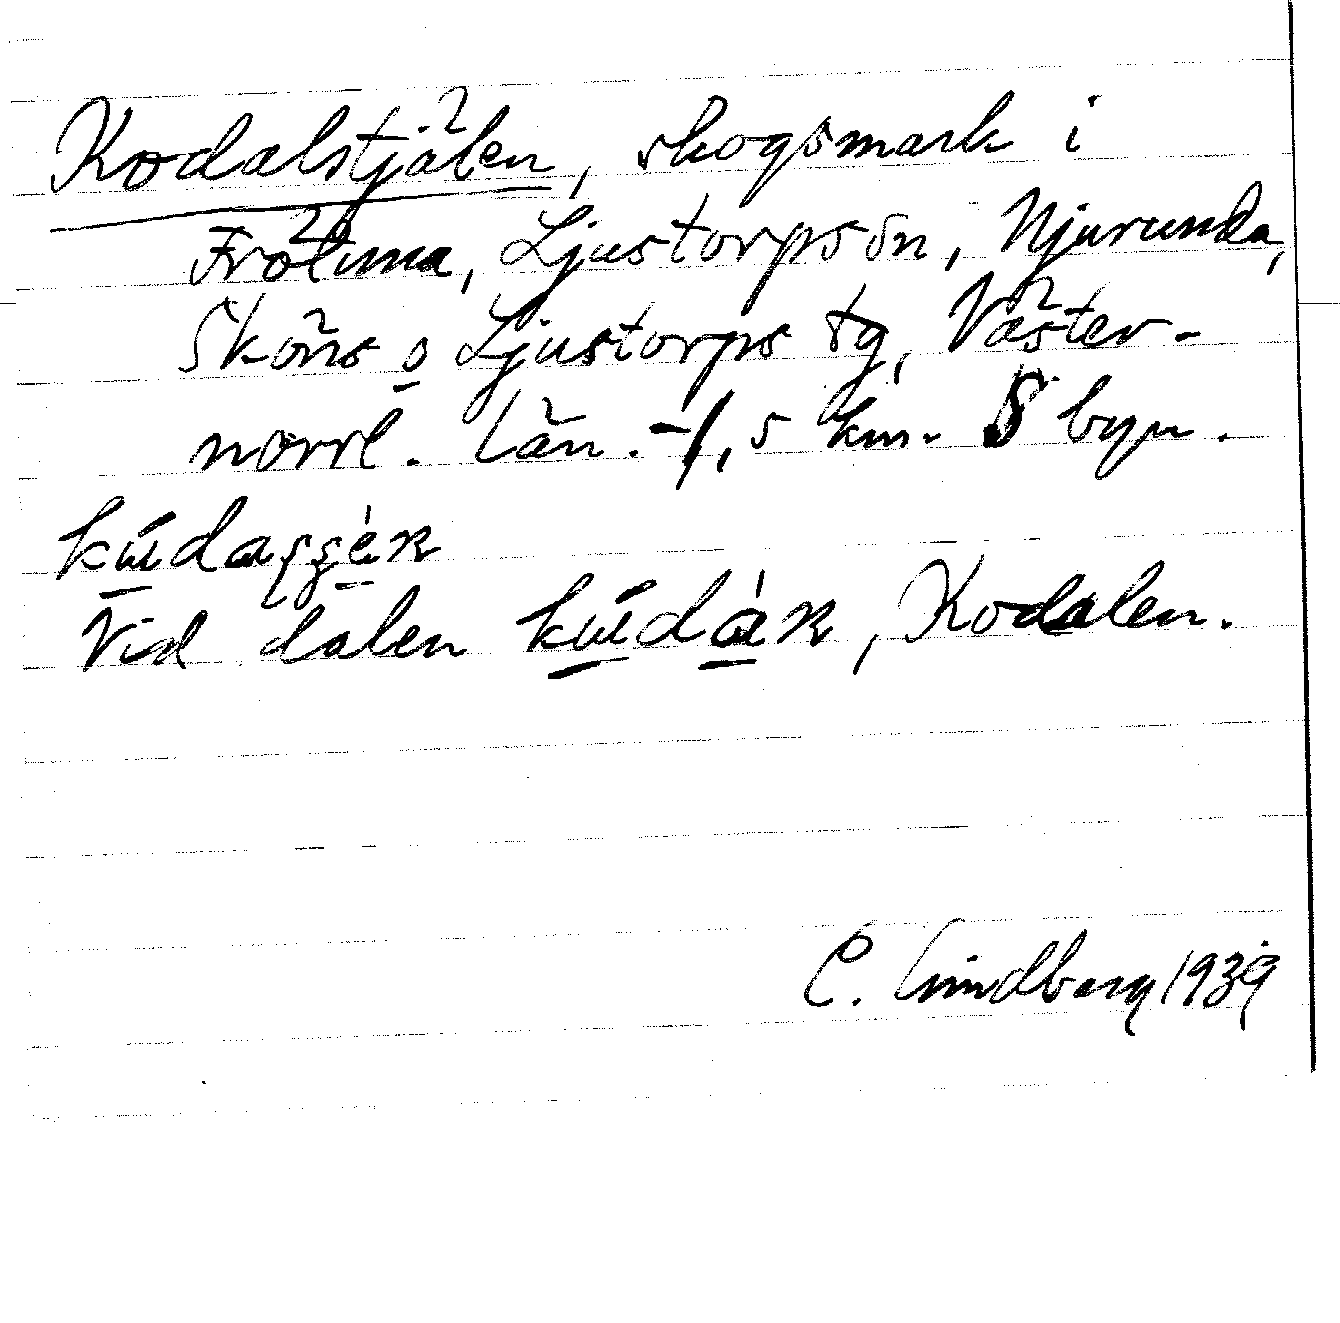 Kodalstjälen, skogsmark i
Frötuna, Ljustorps sn, Njurunda,
Sköns o Ljustorps tg, Väster-
norrl. län. -1,5 km. S byn.
Vid dalen, Kodalen.
C. Lindberg 1939